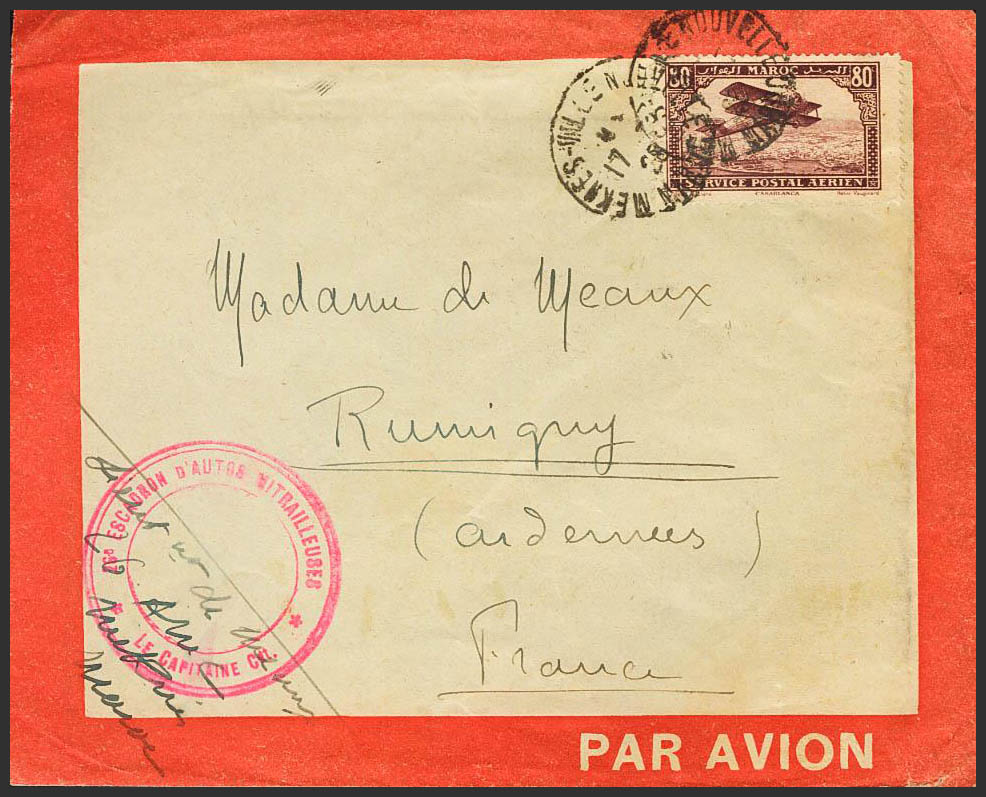 MEKNÈS-VILLE NOUVELLE
17
80 MAROC 80
SERVICE POSTAL AERIEN
CASABLANCA
Madame de Meaux
Rumigny
(Ardennes)
France
ESCADRON D'AUTOS MITRAILLEUSES
LE CAPITAINE Ct.
de
Meknès
Maroc
PAR AVION